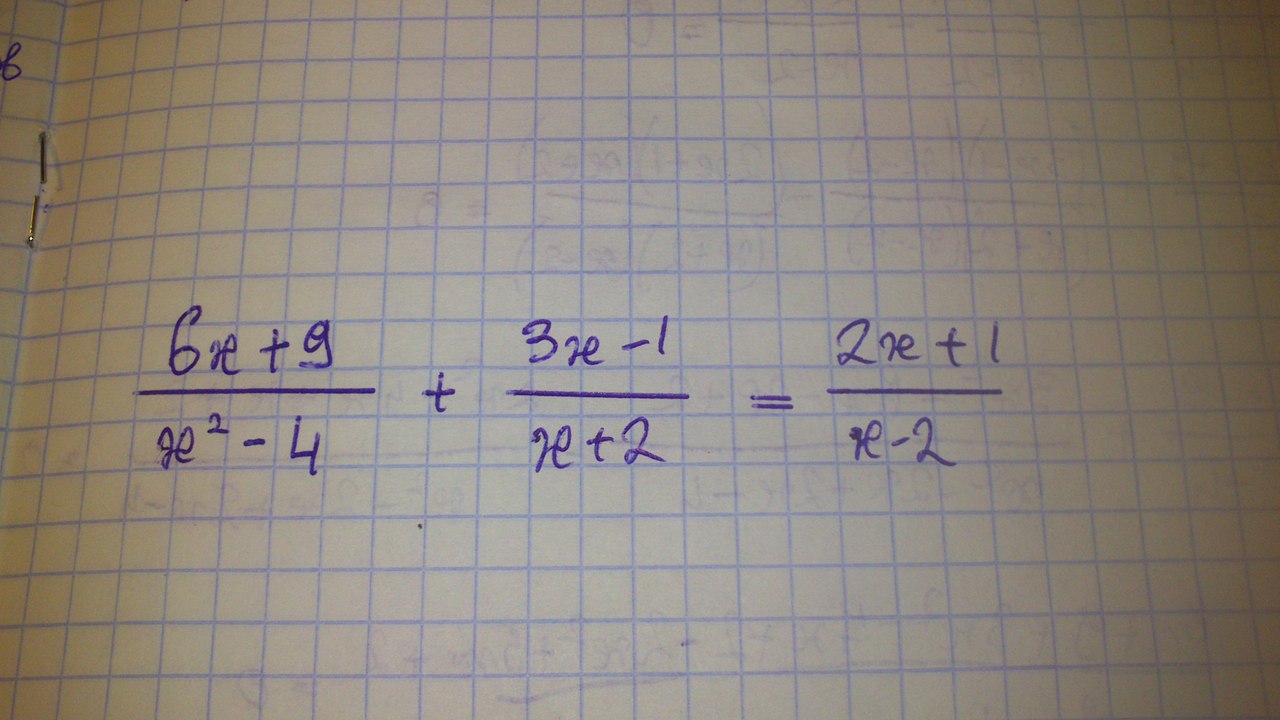 в
6x + 9 / x² - 4 + 3x - 1 / x + 2 = 2x + 1 / x - 2